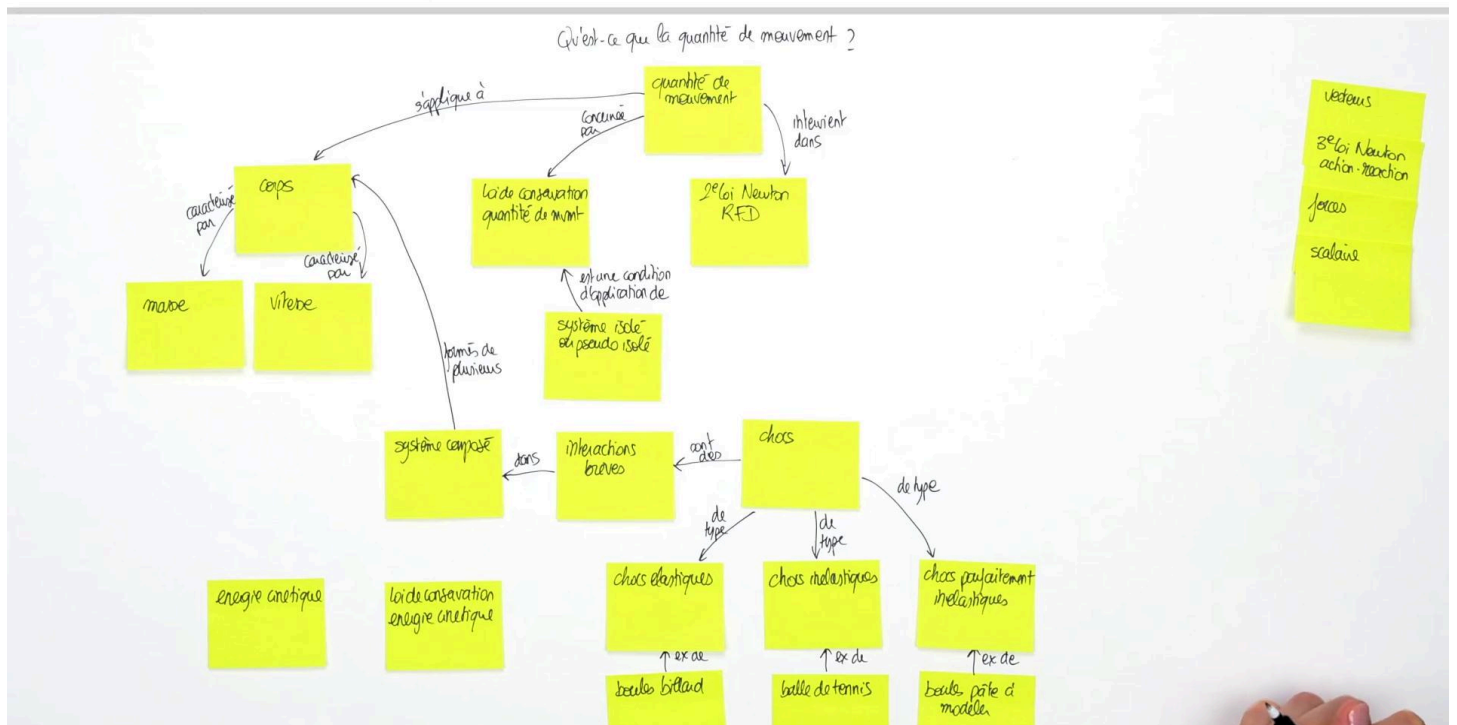 Qu'est-ce que la quantité de mouvement ?
quantité de
mouvement
s'applique à
concernée
par
intervient
dans
vecteurs
3e loi Newton
action-réaction
forces
scalaire
corps
loi de conservation
quantité de mvmt
2e loi Newton
RFD
caractérisé
par
caractérisé
par
masse
vitesse
est une condition
d'application de
système isolé
ou pseudo isolé
formés de
plusieurs
système composé
dans
interactions
brèves
sont
des
chocs
de type
de
type
de
type
chocs élastiques
chocs inélastiques
chocs parfaitement
inélastiques
énergie cinétique
loi de conservation
énergie cinétique
ex de
ex de
ex de
boules billard
balle de tennis
boules pâte à
modeler